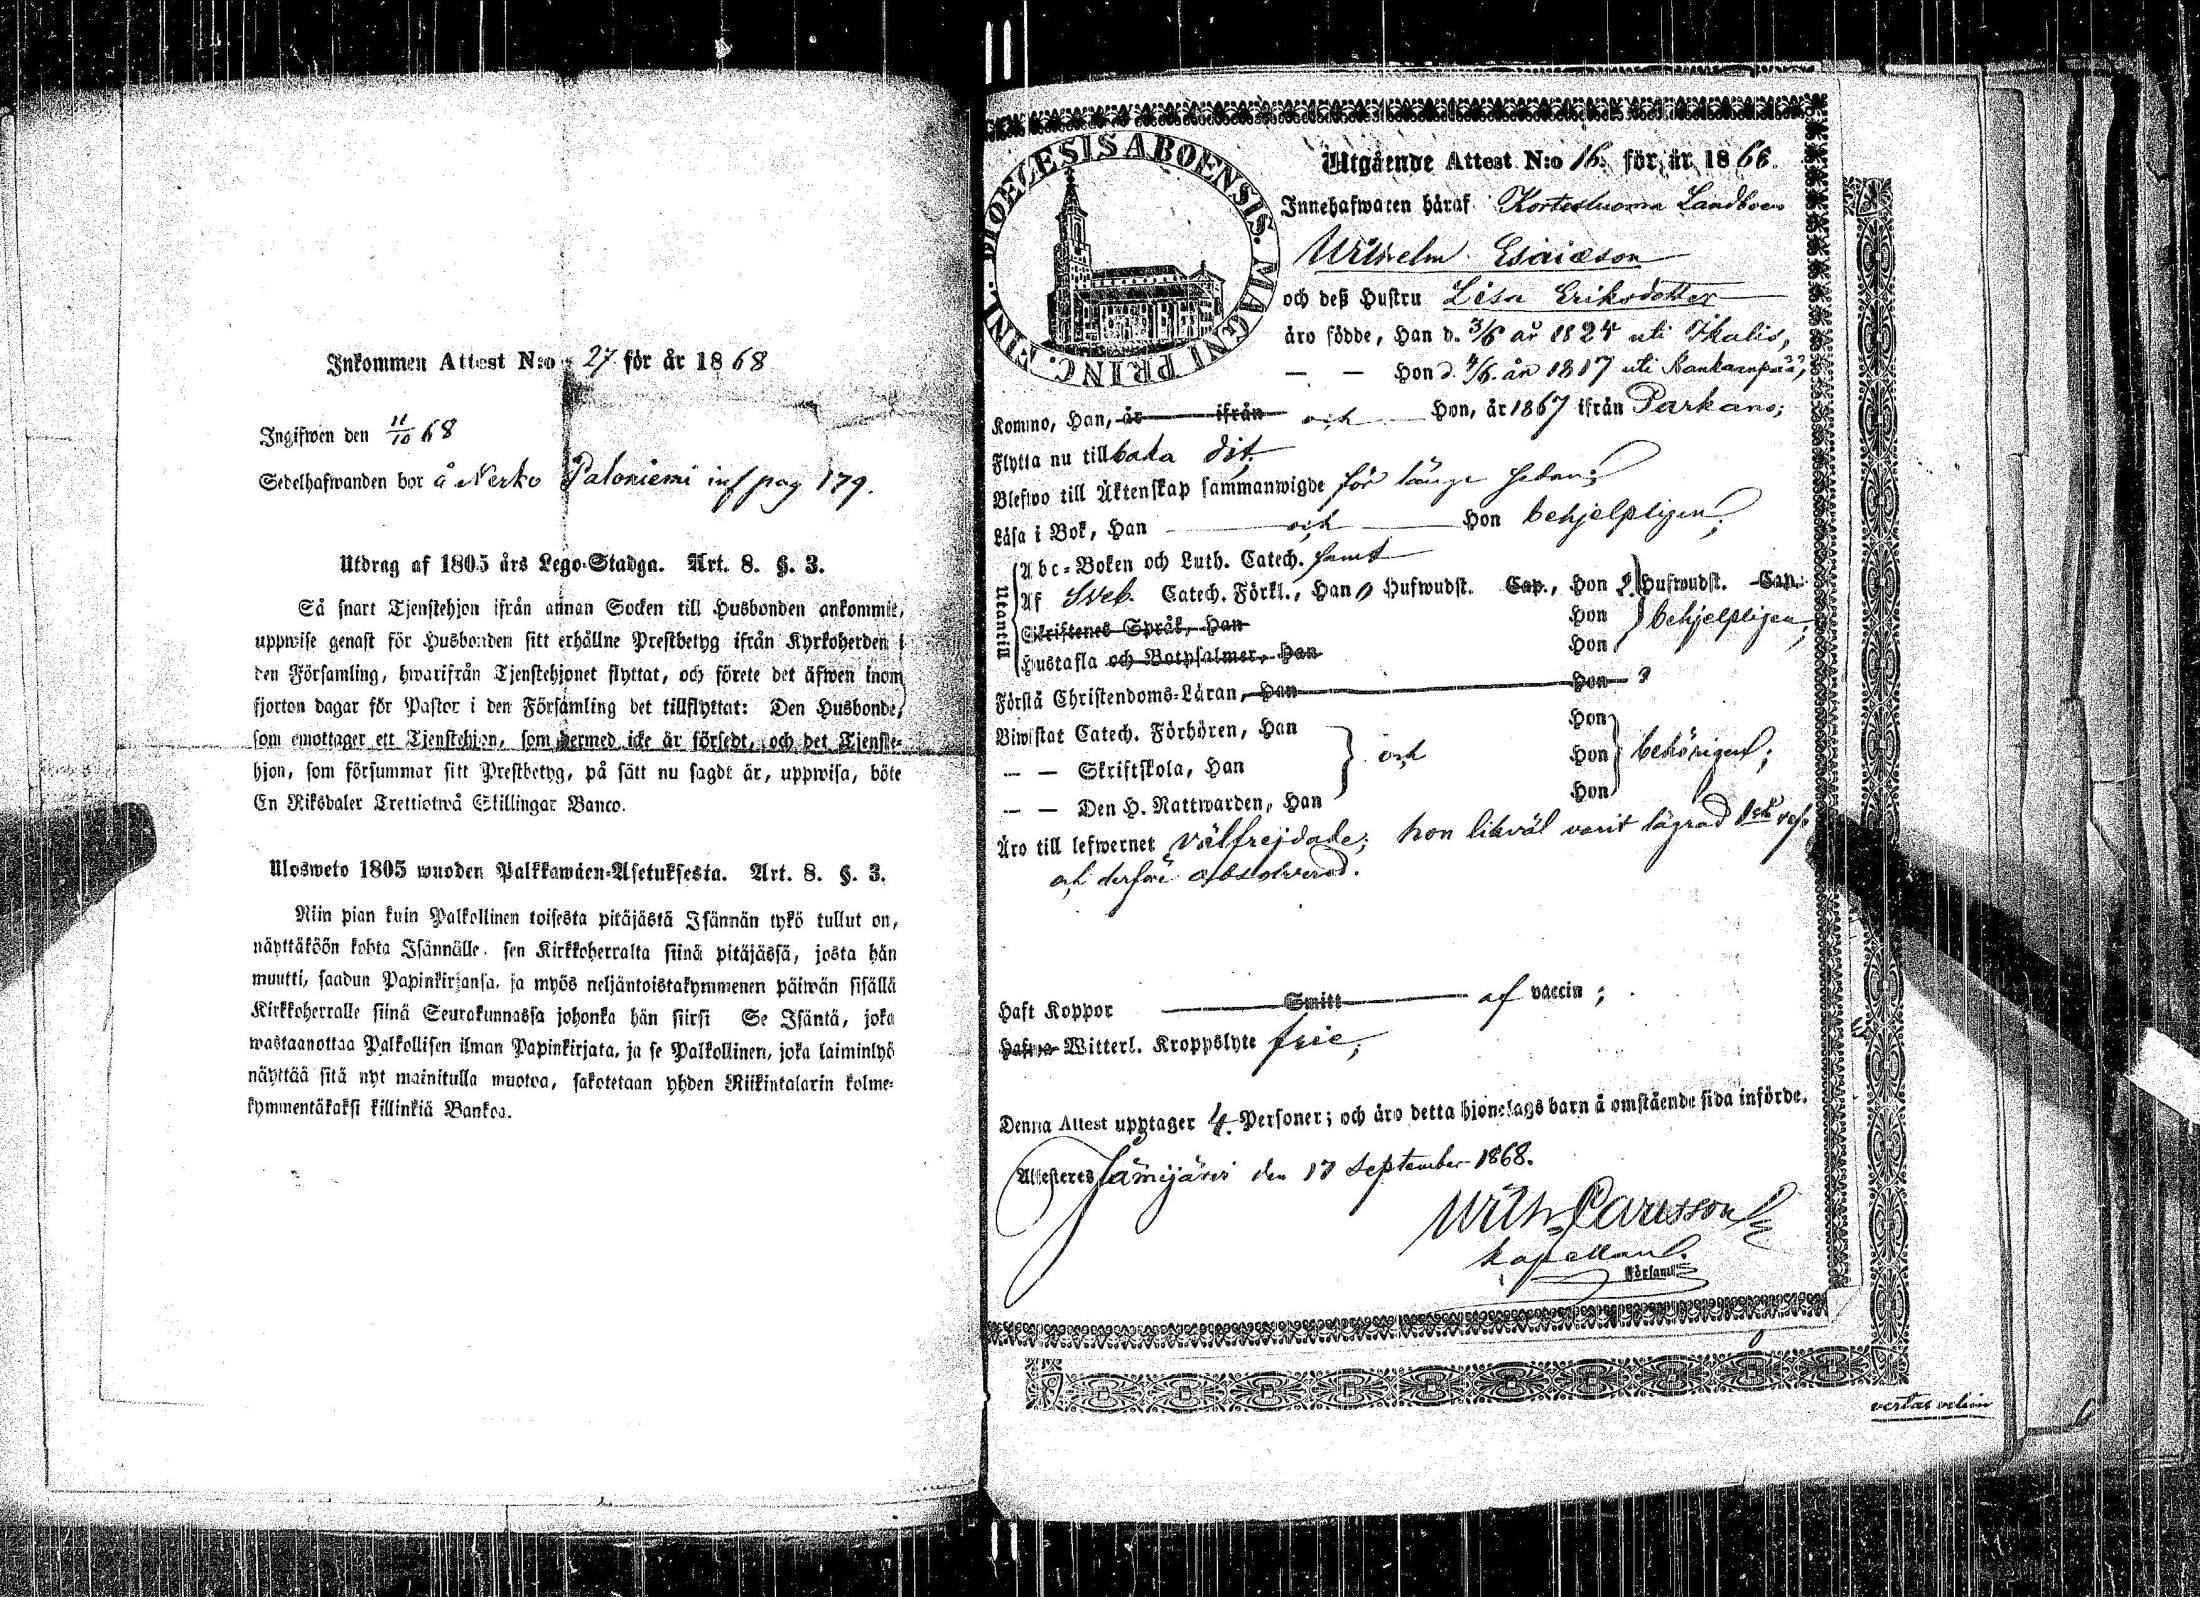 Inkommen Attest N:o 27 för år 1868
Ingifwen den 11/10 68
Sedelhafwanden bor å Nerko Paloniemi inf pag 179.
Utdrag af 1805 års Lego-Stadga. Art. 8. §. 3.
Så snart Tjenstehjon ifrån annan Socken till Husbonden ankommit,
uppwise genast för Husbonden sitt erhållne Prestbetyg ifrån Kyrkoherden i
den Församling, hwarifrån Tjenstehjonet flyttat, och förete det äfwen inom
fjorton dagar för Pastor i den Församling det tillflyttat: Den Husbonde,
som emottager ett Tjenstehjon, som dermed icke är försedt, och det Tjenste-
hjon, som försummar sitt Prestbetyg, på sätt nu sagdt är, uppwisa, böte
En Riksdaler Trettiotwå Skillingar Banco.
Ulosweto 1805 wuoden Palkkawäen-Asetuksesta. Art. 8. §. 3.
Niin pian kuin Palkollinen toisesta pitäjästä Isännän tykö tullut on,
näyttäköön kohta Isännälle, sen Kirkkoherralta siinä pitäjässä, josta hän
muutti, saadun Papinkirjansa, ja myös neljäntoistakymmenen päiwän sisällä
Kirkkoherralle siinä Seurakunnassa johonka hän siirsi Se Isäntä, joka
wastaanottaa Palkollisen ilman Papinkirjata, ja se Palkollinen, joka laiminlyö
näyttää sitä nyt mainitulla muotoa, sakotetaan yhden Riikintalarin kolme-
kymmentäkaksi killinkiä Bankoa.
DIOECESIS ABOENSIS. MAGNI PRINC. FINL.
Utgående Attest N:o 16. för år 1868.
Innehafwaren häraf Kortesluoma Landboen
Wilhelm Esaiæson
och deß Hustru Lisa Eriksdotter
äro födde, Han d. 3/6 år 1824 uti Ikalis,
— — Hon d. 4/6 år 1817 uti Kankaanpää,
Kommo, Han, år ifrån och Hon, år 1867 ifrån Parkano;
Flytta nu tillbaka dit.
Blefwo till Äktenskap sammanwigde för länge sedan;
Läsa i Bok, Han och Hon behjelpligen;
Utantill
Abc-Boken och Luth. Catech. samt
Af Sveb. Catech. Förkl., Han Hufwudst. Cap., Hon 2. Hufwudst. Cap.
Skriftenes Språk, Han Hon behjelpligen,
Hustafla och Botpsalmer, Han Hon
Förstå Christendoms-Läran, Han Hon
Biwistat Catech. Förhören, Han Hon
— — Skriftskola, Han och Hon behörigen;
— — Den H. Nattwarden, Han Hon
Äro till lefwernet välfrejdade; hon likväl varit lägrad
och derföre absolverad.
Haft Koppor Smitt af vaccin;
Hafwa Witterl. Kroppslyte frie,
Denna Attest upptager 4 Personer; och äro detta hjonelags barn å omstående sida införde.
Attesteres Jämijärvi den 17 September 1868.
Wilh. Carlsson
kapellan
Församl.
vertas